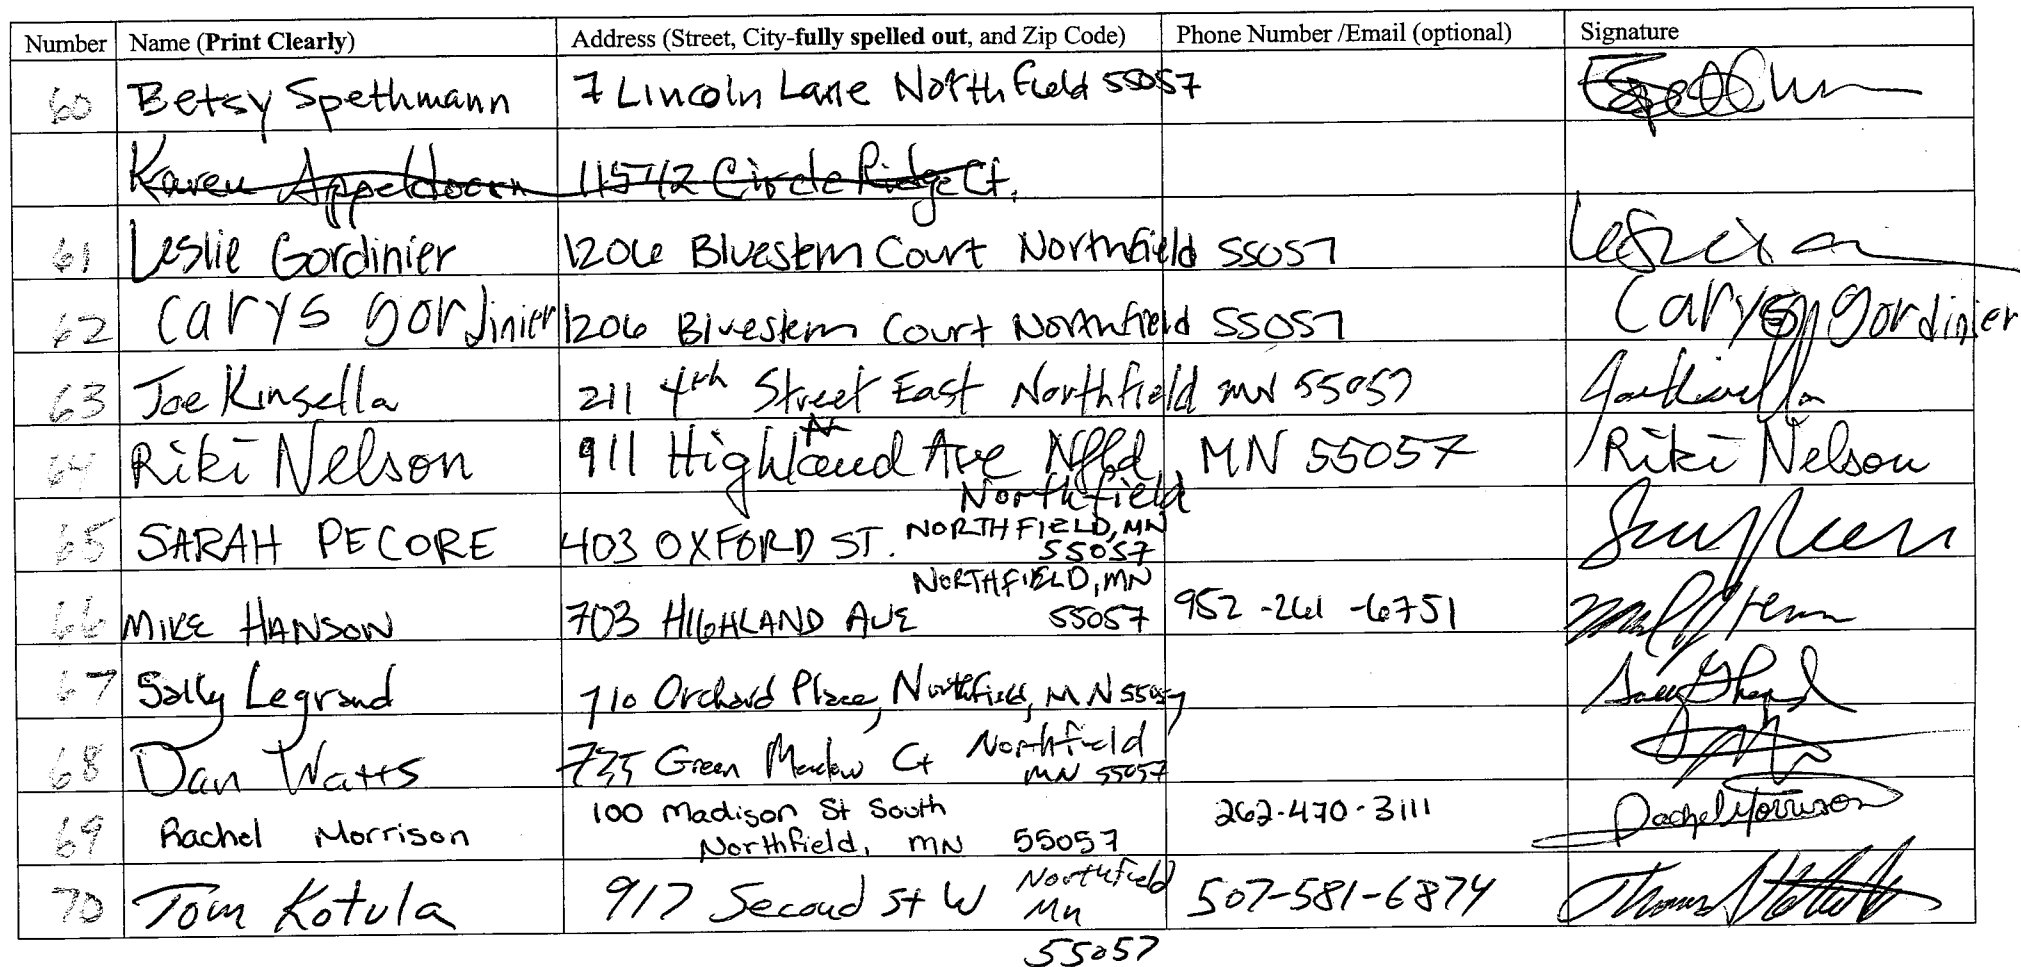 Number Name (Print Clearly) Address (Street, City-fully spelled out, and Zip Code) Phone Number /Email (optional) Signature
60 Betsy Spethmann 7 Lincoln Lane Northfield 55057
Karen Appeldoorn 11572 Circle Ridge Ct,
61 Leslie Gordinier 1206 Bluestem Court Northfield 55057
62 Carys Gordinier 1206 Bluestem Court Northfield 55057 Carys Gordinier
63 Joe Kinsella 211 4th Street East Northfield MN 55057
64 Riki Nelson 911 Highland Ave Nfld MN 55057 Riki Nelson
Northfield
65 SARAH PECORE 403 OXFORD ST. NORTHFIELD, MN
55057
NORTHFIELD, MN
66 MIKE HANSON 703 HIGHLAND AVE 55057 952-261-6751
67 Sally Legrand 710 Orchard Place, Northfield, MN 55057
68 Dan Watts 735 Green Meadow Ct Northfield
MN 55057
69 Rachel Morrison 100 Madison St South 262-470-3111 Rachel Morrison
Northfield, MN 55057
70 Tom Kotula 917 Second St W Northfield 507-581-6874
Mn
55057